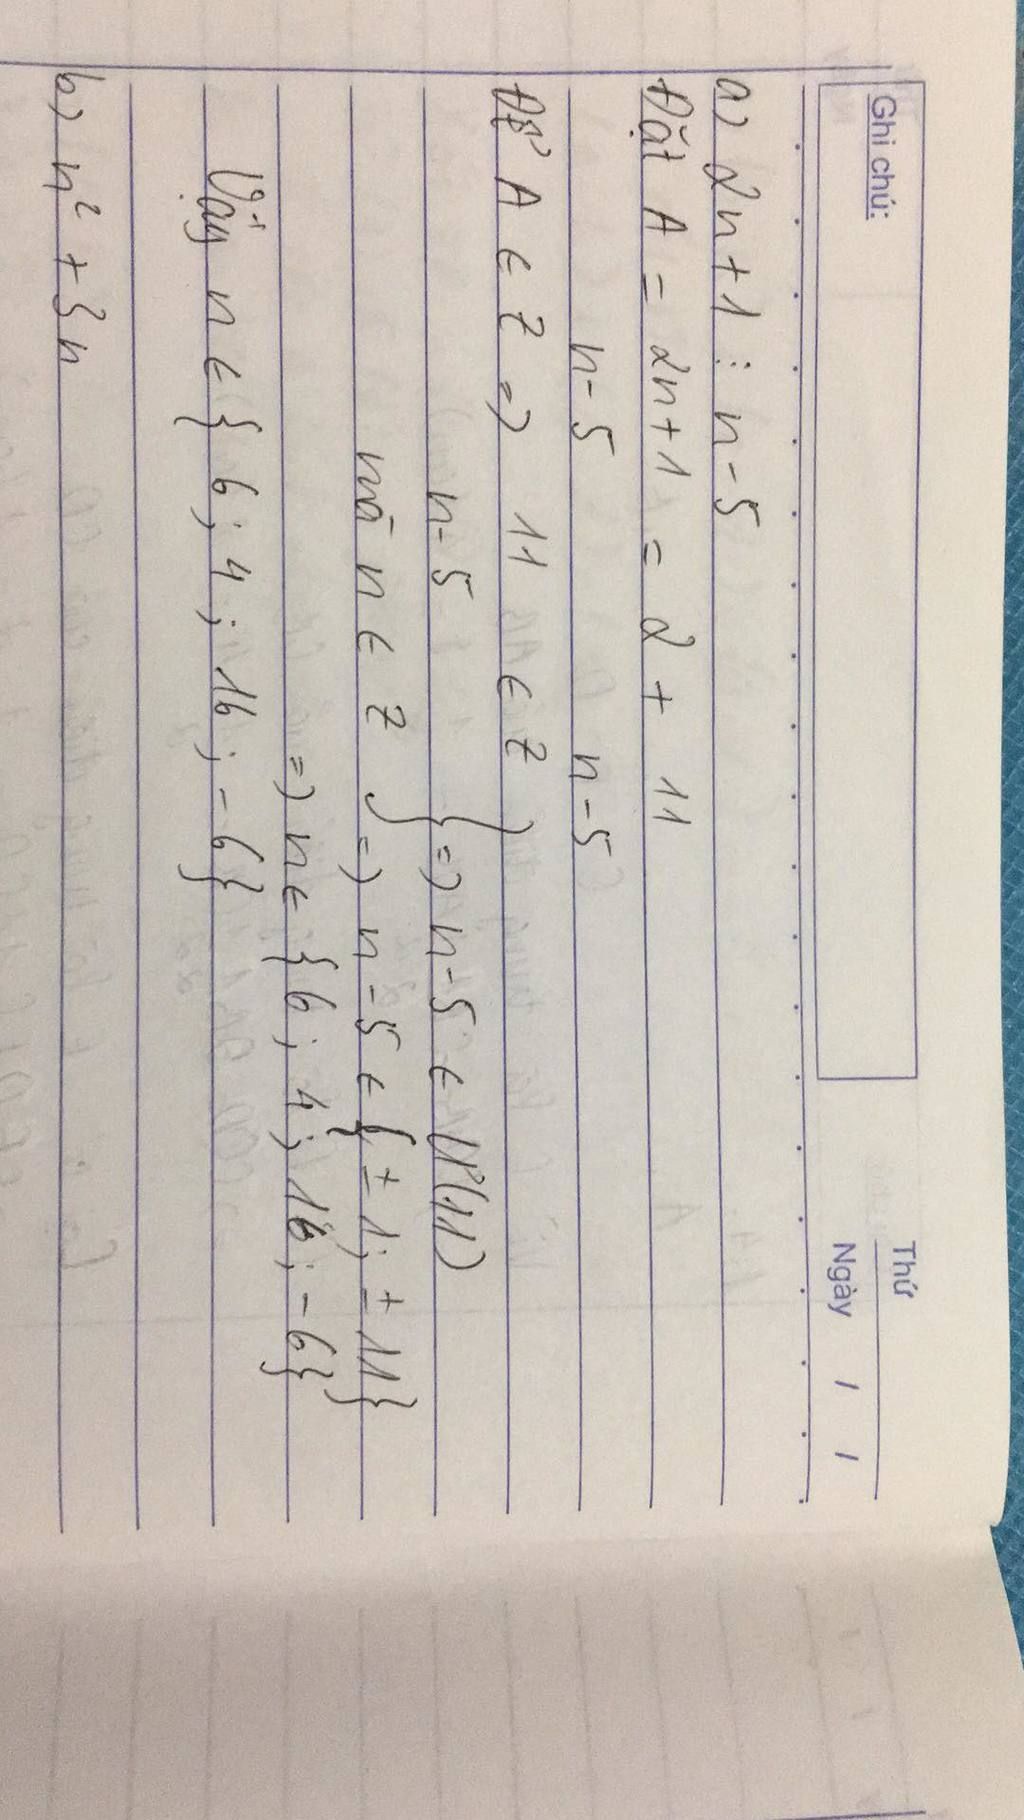 Ghi chú:
Thứ
Ngày / /
a) 2n+1 ⋮ n-5
Đặt A = 2n+1 = 2 + 11
n-5 n-5
Để A ∈ Z => 11 ∈ Z
n-5 } => n-5 ∈ Ư(11)
mà n ∈ Z => n-5 ∈ { ± 1; ± 11}
=> n ∈ {6; 4; 16; -6}
Vậy n ∈ { 6; 4; 16; -6}
b) n² + 3n